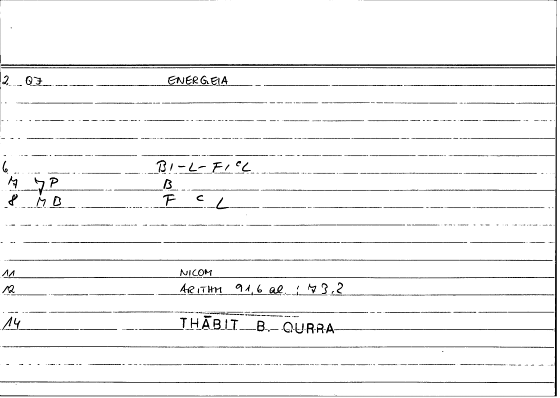 2 QJ ENERGEIA
6 BI-L-FIcL
7 7P B
8 MB F c L
11 NICOM
12 ARITHM 91,6 al. : 73,2
14 THĀBIT B. QURRA